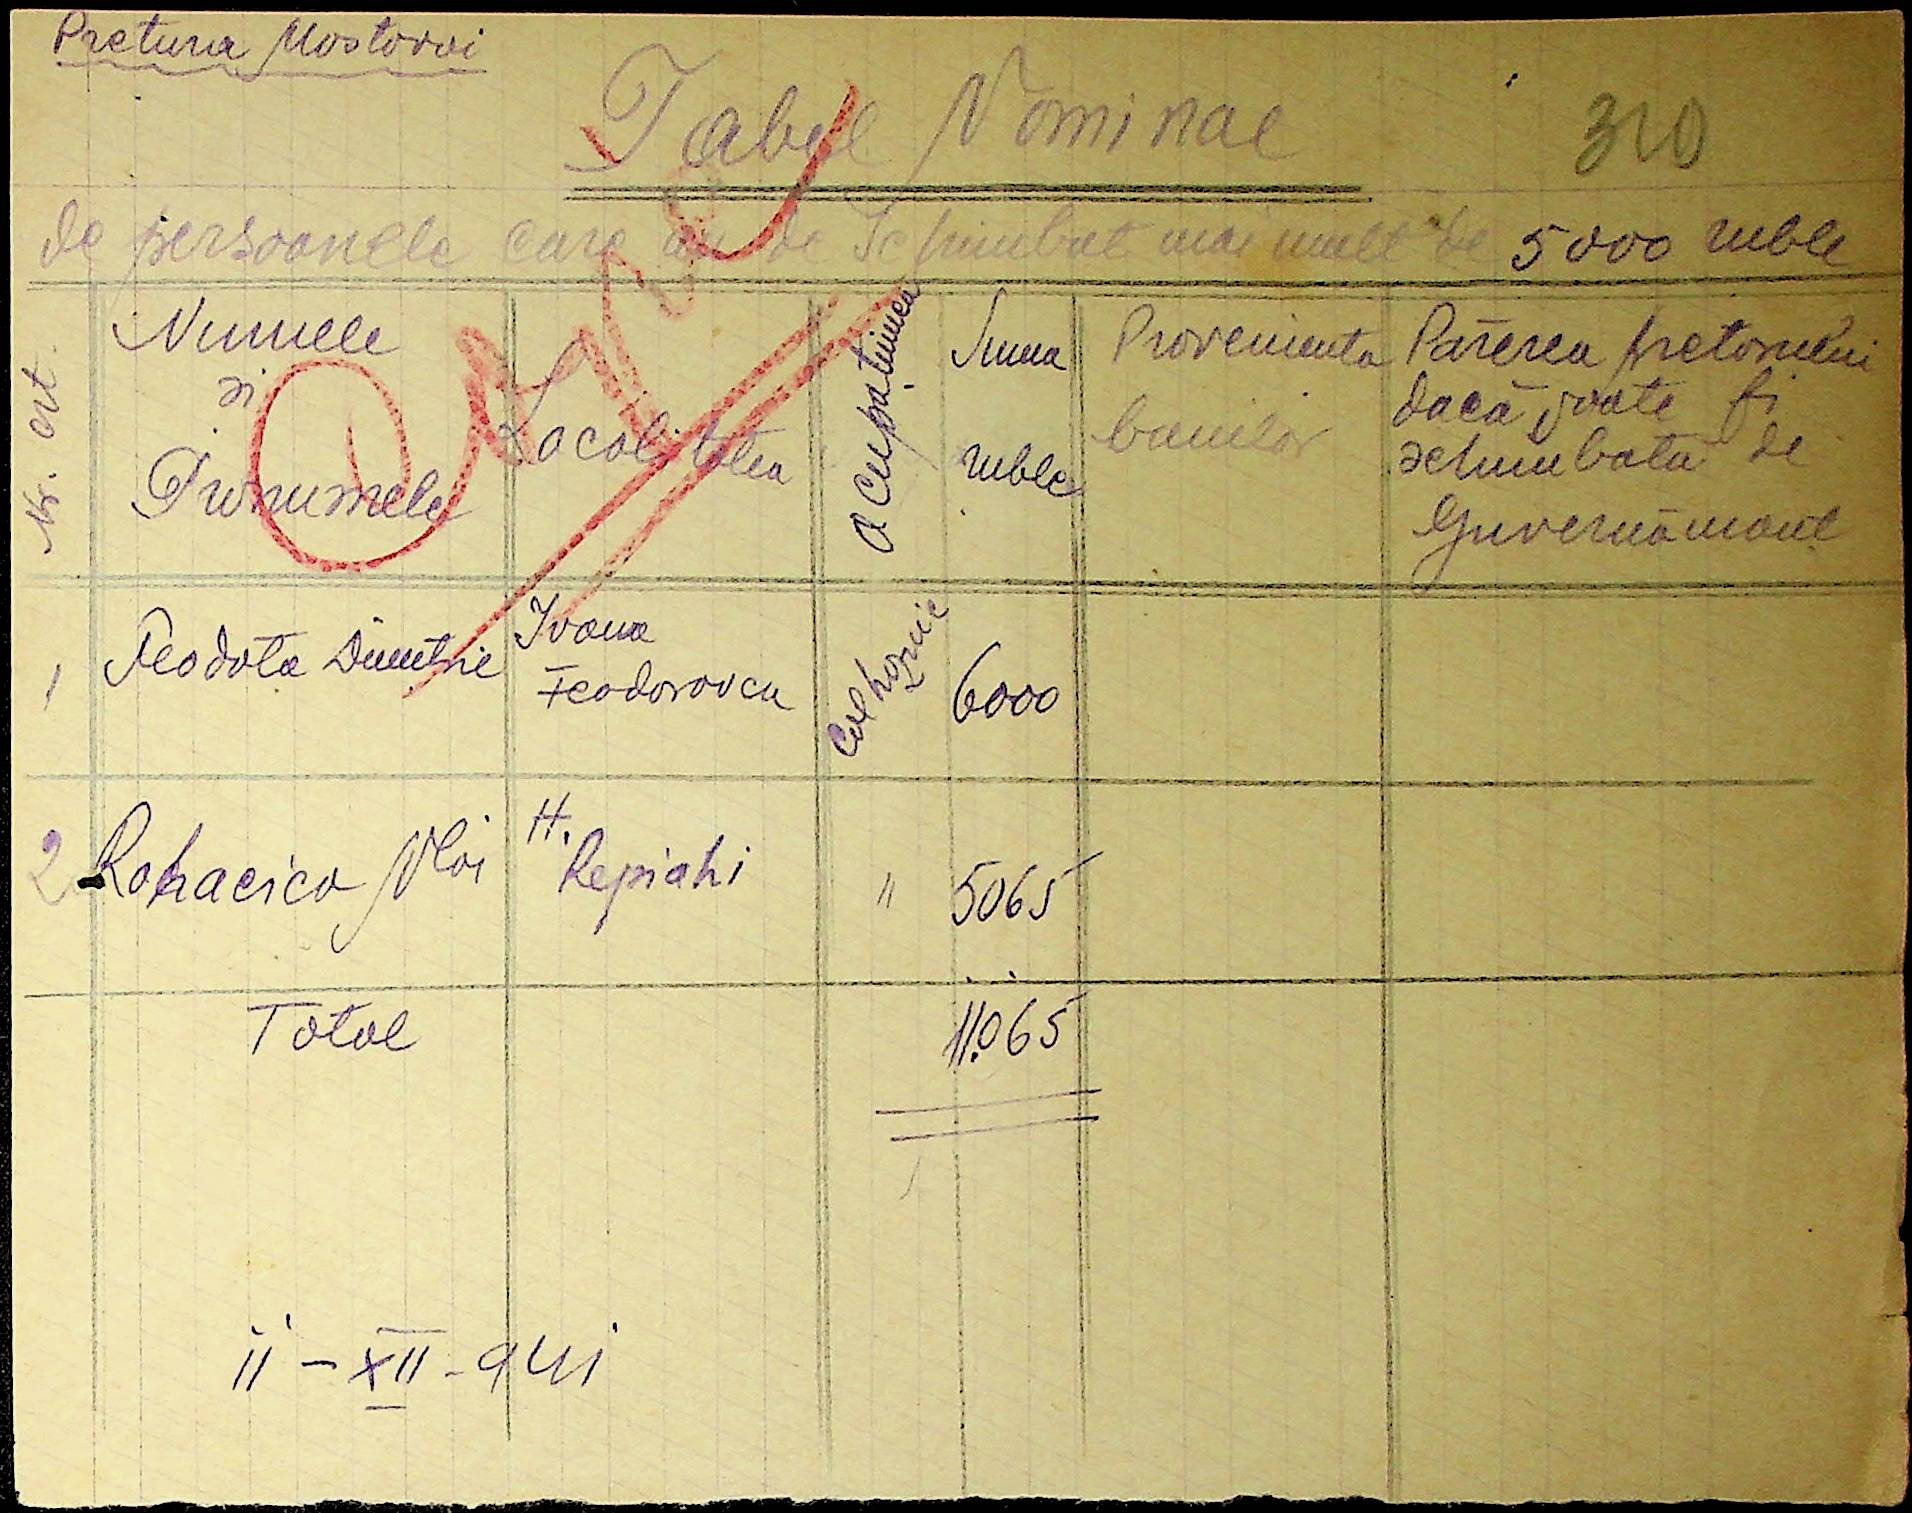 Pretura Mostovoi
Tabel Nominal
310
de persoanele care au de Schimbat mai mult de 5000 ruble
Nr. crt.
Numele
si
Pronumele
Localitatea
Ocupatiunea
Suma
ruble
Provenienta
banilor
Părerea pretorului
dacă poate fi
schimbată de
Guvernămant
1
Feodota Dimitrie
Ivano
Feodorovca
Colhoznic
6000
2
Rohacico Vlas
H.
Repiahi
"
5065
Total
11.065
11-XII-941